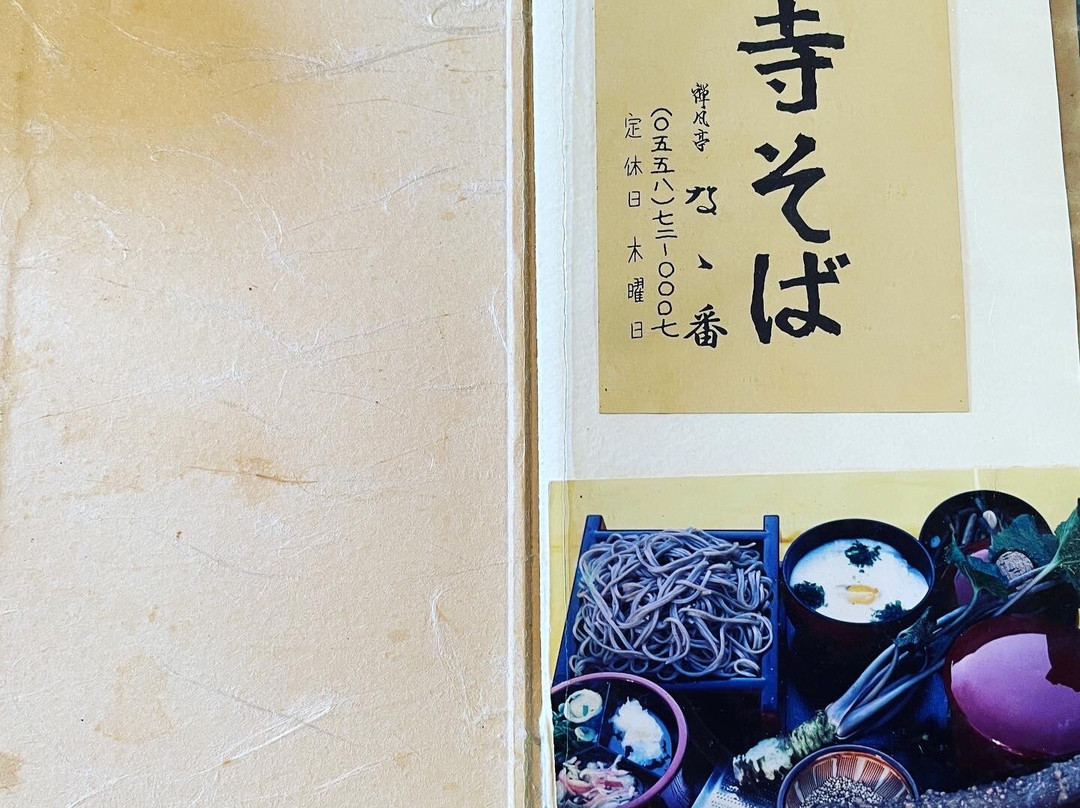 寺そば
禅風亭 なゝ番
(〇五五八)七二ー〇〇〇七
定休日 木曜日